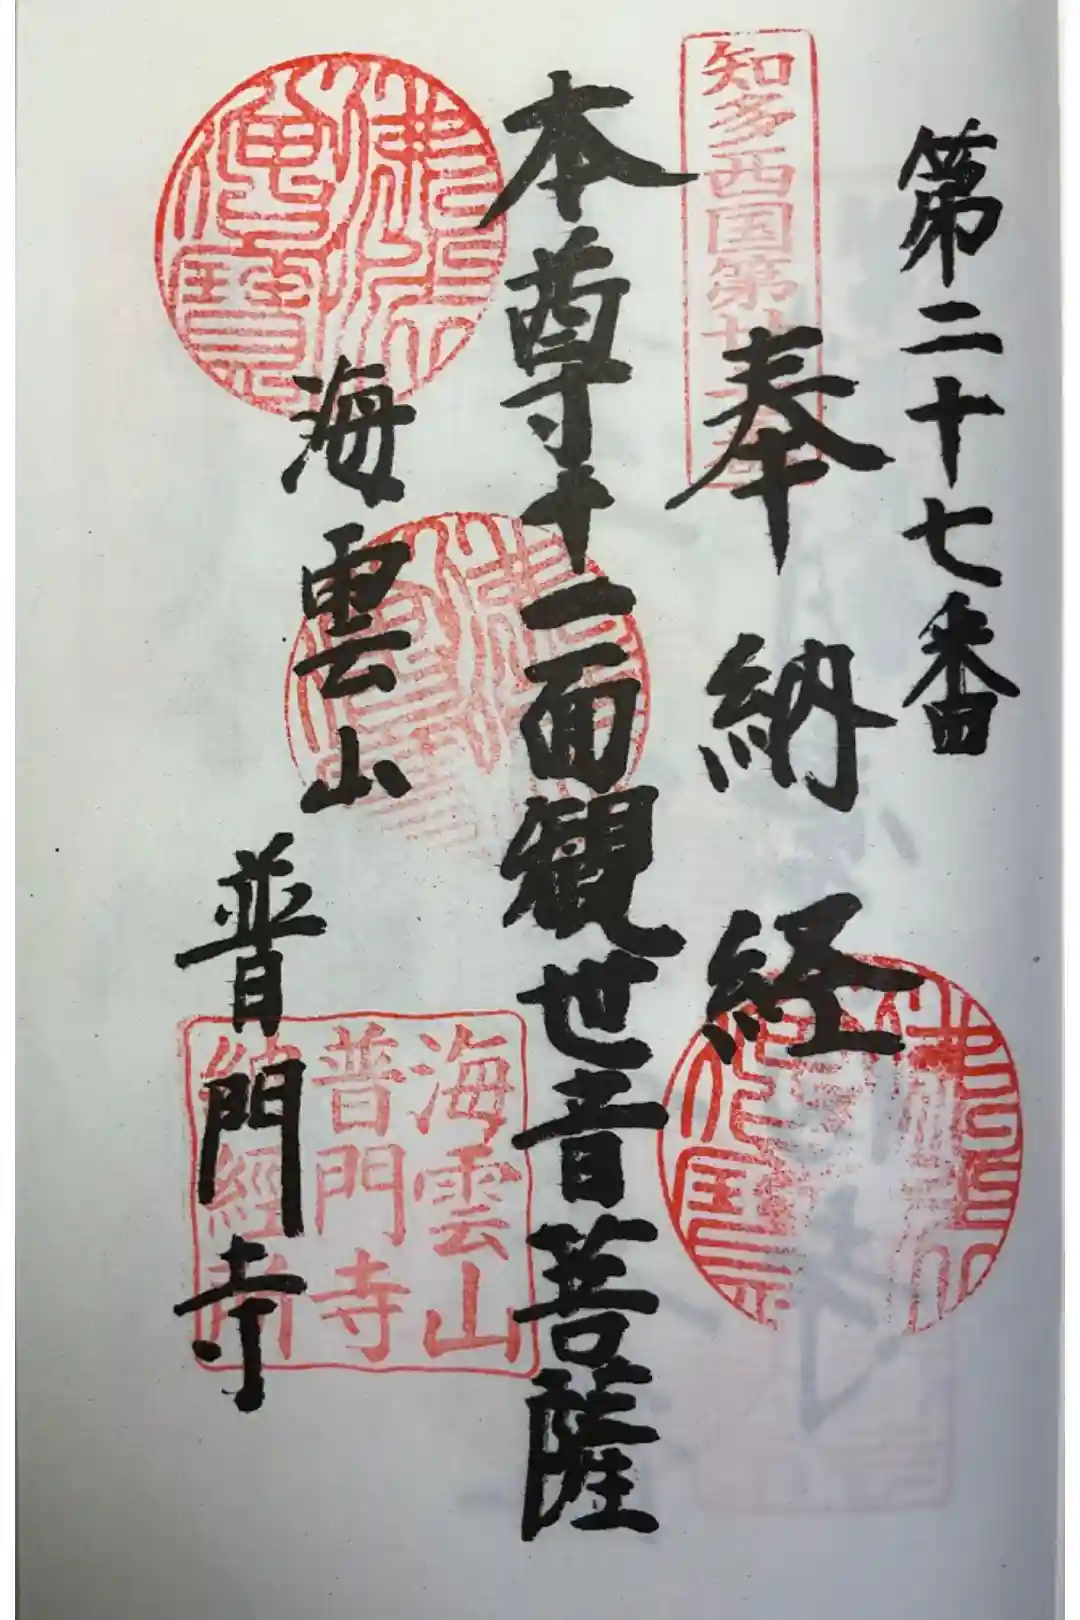 第二十七番
知多西国第廿
奉納経
本尊十一面観世音菩薩
海雲山
普門寺
海雲山
普門寺
納經所